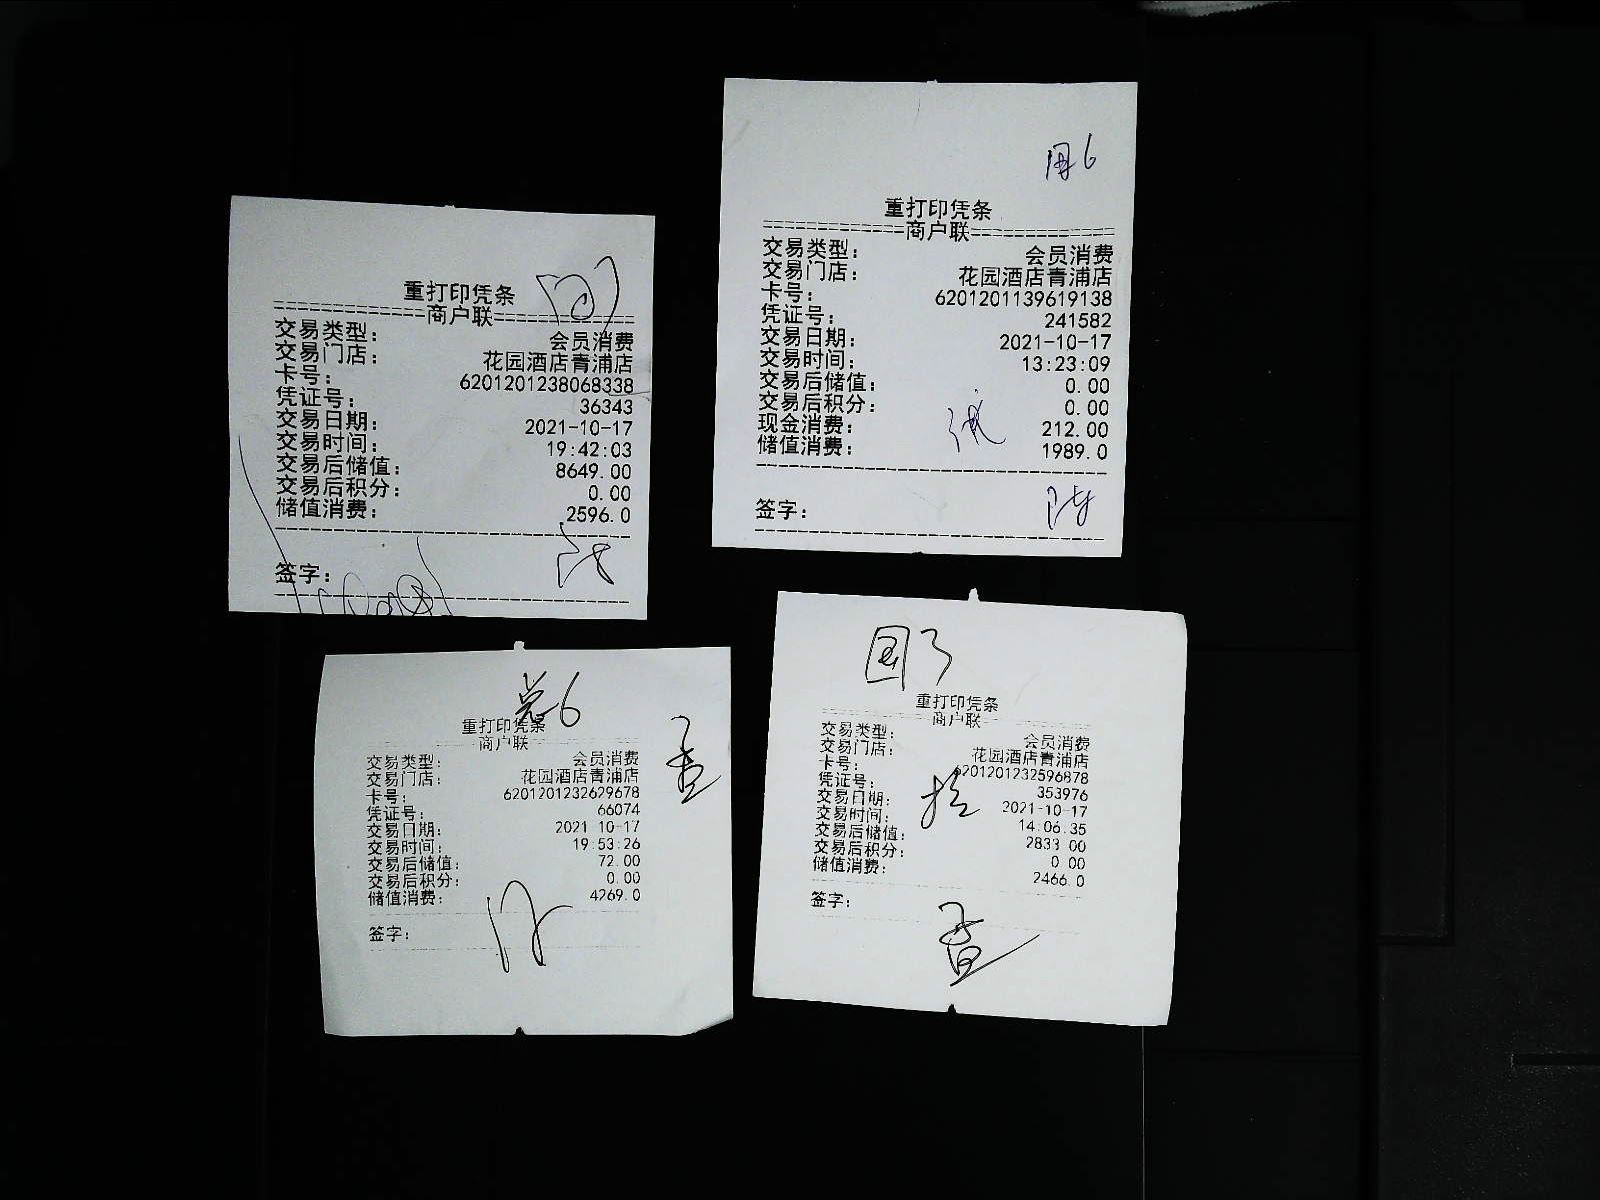 重打印凭条
============商户联============
交易类型: 会员消费
交易门店: 花园酒店青浦店
卡号: 6201201238068338
凭证号: 36343
交易日期: 2021-10-17
交易时间: 19:42:03
交易后储值: 8649.00
交易后积分: 0.00
储值消费: 2596.0
签字:
国6
重打印凭条
============商户联============
交易类型: 会员消费
交易门店: 花园酒店青浦店
卡号: 6201201139619138
凭证号: 241582
交易日期: 2021-10-17
交易时间: 13:23:09
交易后储值: 0.00
交易后积分: 0.00
现金消费: 212.00
储值消费: 1989.0
签字:
6
重打印凭条
商户联
交易类型: 会员消费
交易门店: 花园酒店青浦店
卡号: 6201201232629678
凭证号: 66074
交易日期: 2021-10-17
交易时间: 19:53:26
交易后储值: 72.00
交易后积分: 0.00
储值消费: 4269.0
签字:
国3
重打印凭条
商户联
交易类型: 会员消费
交易门店: 花园酒店青浦店
卡号: 6201201232596878
凭证号: 353976
交易日期: 2021-10-17
交易时间: 14:06:35
交易后储值: 2833.00
交易后积分: 0.00
储值消费: 2466.0
签字: